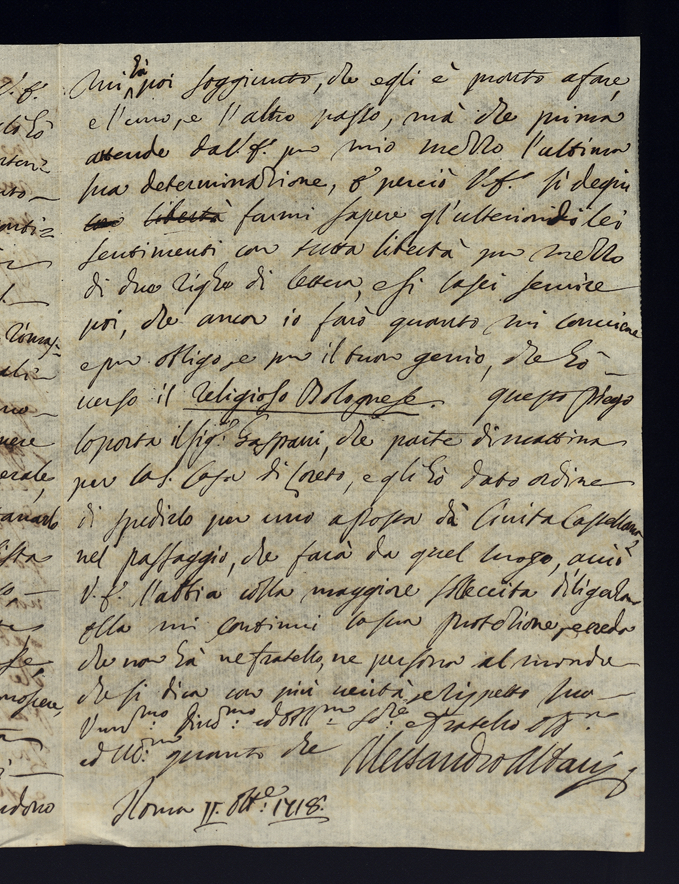 mi hà poi soggiunto, che egli è pronto a fare,
e l'uno, e l'altro passo, mà che prima
attende dal V.E. per mio mezzo l'ultima
sua determinazione, e perciò V.E. si degni
con libertà farmi sapere gl'ulteriori di lei
sentimenti con tutta libertà per mezzo
di due righe di lettera, e si lasci servire
poi, che ancor io farò quanto mi conviene
e per obligo, e per il buon genio, che hò
verso il Religioso Bolognese. questo piego
lo porta il Sig.r Gaspari, che parte di mattina
per la S. Casa di Loreto, e gli hò dato ordine
di spedirlo per uno a posta dà Civita Castellana
nel passaggio, che farà da quel luogo, acciò
V.E. l'abbia colla maggiore sollecita diligenza
ella mi continui la sua protezione, e creda
che non hà ne fratello, ne persona al mondo
che si dica con più verità, e rispetto suo
Um.mo Div.mo ed Obb.mo e fratello
ed quanto che Alessandro Albani
Roma 11. Ott.e 1718.
ndono